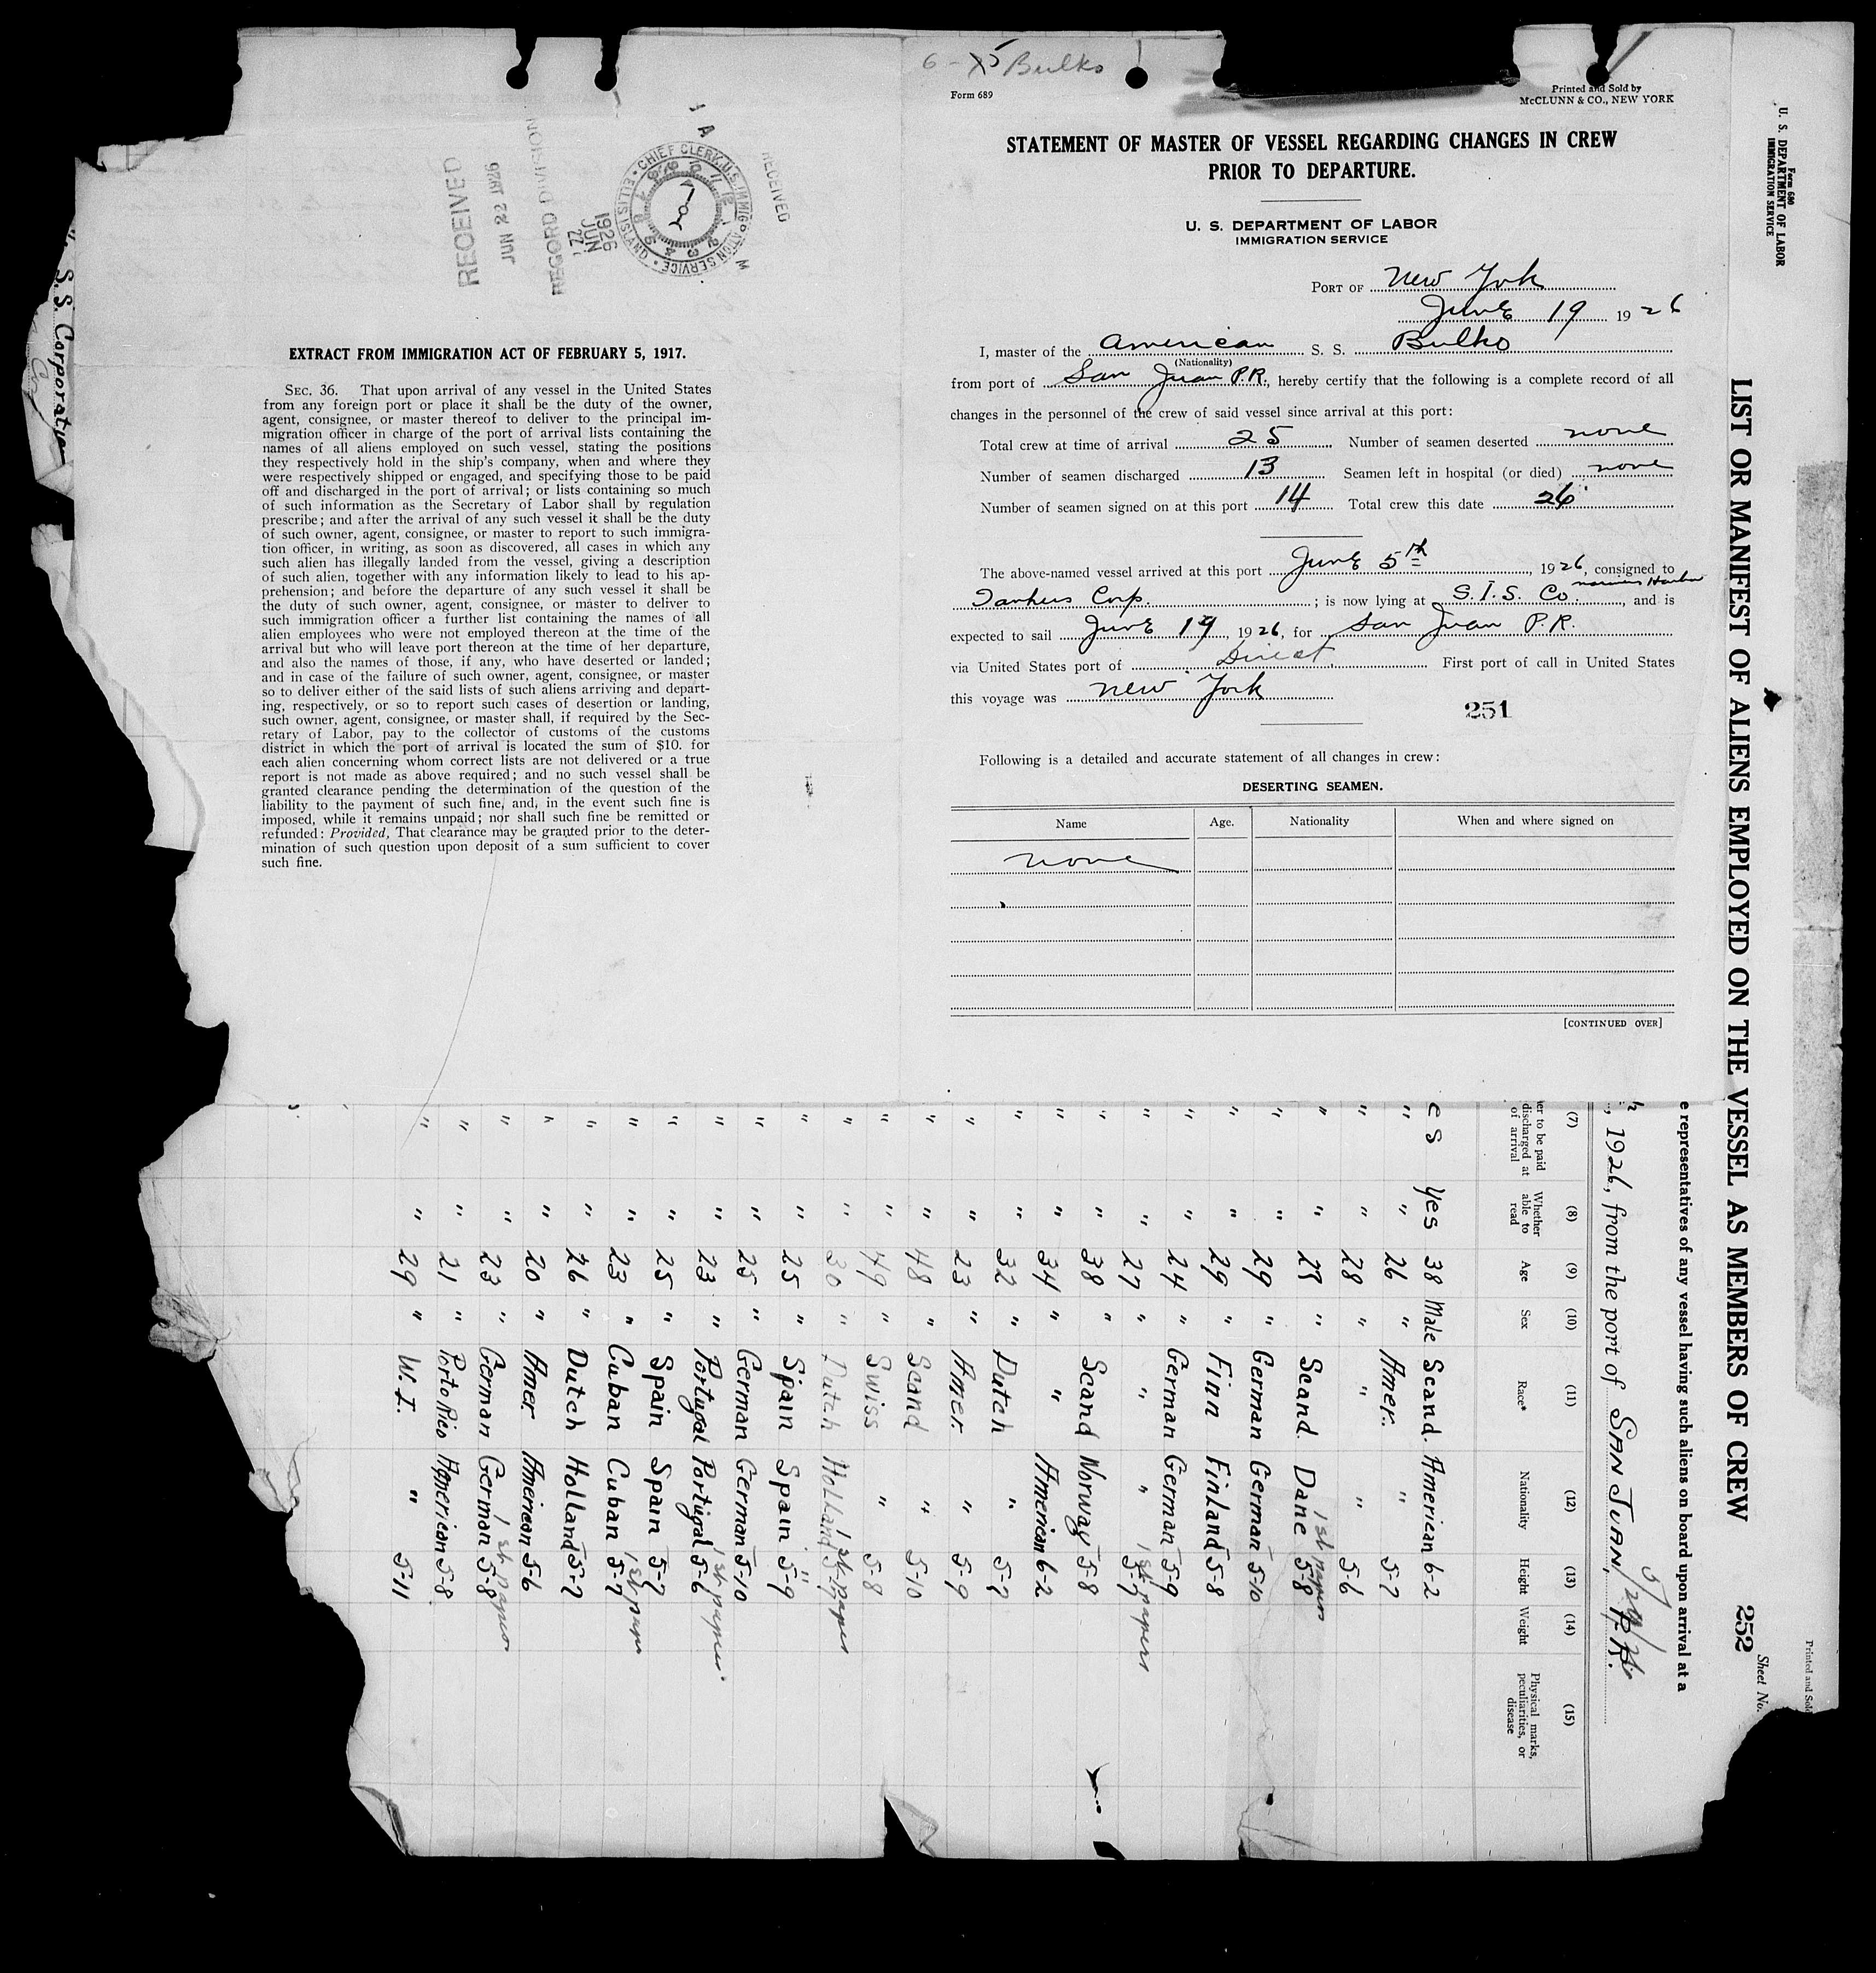 6 - 15 Bulko
Form 689
Printed and Sold by
McCLUNN & CO., NEW YORK
STATEMENT OF MASTER OF VESSEL REGARDING CHANGES IN CREW
PRIOR TO DEPARTURE.
U. S. DEPARTMENT OF LABOR
IMMIGRATION SERVICE
PORT OF New York
June 19 1926
I, master of the American S. S. Bulko
(Nationality)
from port of San Juan P.R., hereby certify that the following is a complete record of all
changes in the personnel of the crew of said vessel since arrival at this port:
Total crew at time of arrival 25 Number of seamen deserted none
Number of seamen discharged 13 Seamen left in hospital (or died) none
Number of seamen signed on at this port 14 Total crew this date 26
The above-named vessel arrived at this port June 5th, 1926, consigned to
Tankers Corp. ; is now lying at S.I.S. Co. Mariners Harbor, and is
expected to sail June 19, 1926, for San Juan P.R.
via United States port of Direct First port of call in United States
this voyage was New York
251
Following is a detailed and accurate statement of all changes in crew:
DESERTING SEAMEN.
Name Age. Nationality When and where signed on
none
[CONTINUED OVER]
RECEIVED
JUN 22 1926
RECORD DIVISION
1926
JUN
22
CHIEF CLERK, U.S. IMMIGRATION SERVICE • ELLIS ISLAND
RECEIVED
A M
S. S. Corporation
EXTRACT FROM IMMIGRATION ACT OF FEBRUARY 5, 1917.
SEC. 36. That upon arrival of any vessel in the United States
from any foreign port or place it shall be the duty of the owner,
agent, consignee, or master thereof to deliver to the principal im-
migration officer in charge of the port of arrival lists containing the
names of all aliens employed on such vessel, stating the positions
they respectively hold in the ship's company, when and where they
were respectively shipped or engaged, and specifying those to be paid
off and discharged in the port of arrival; or lists containing so much
of such information as the Secretary of Labor shall by regulation
prescribe; and after the arrival of any such vessel it shall be the duty
of such owner, agent, consignee, or master to report to such immigra-
tion officer, in writing, as soon as discovered, all cases in which any
such alien has illegally landed from the vessel, giving a description
of such alien, together with any information likely to lead to his ap-
prehension; and before the departure of any such vessel it shall be
the duty of such owner, agent, consignee, or master to deliver to
such immigration officer a further list containing the names of all
alien employees who were not employed thereon at the time of the
arrival but who will leave port thereon at the time of her departure,
and also the names of those, if any, who have deserted or landed;
and in case of the failure of such owner, agent, consignee, or master
so to deliver either of the said lists of such aliens arriving and depart-
ing, respectively, or so to report such cases of desertion or landing,
such owner, agent, consignee, or master shall, if required by the Sec-
retary of Labor, pay to the collector of customs of the customs
district in which the port of arrival is located the sum of $10. for
each alien concerning whom correct lists are not delivered or a true
report is not made as above required; and no such vessel shall be
granted clearance pending the determination of the question of the
liability to the payment of such fine, and, in the event such fine is
imposed, while it remains unpaid; nor shall such fine be remitted or
refunded: Provided, That clearance may be granted prior to the deter-
mination of such question upon deposit of a sum sufficient to cover
such fine.
Form 680
U. S. DEPARTMENT OF LABOR
IMMIGRATION SERVICE
Printed and Sold
Sheet No.
LIST OR MANIFEST OF ALIENS EMPLOYED ON THE VESSEL AS MEMBERS OF CREW 252
e representatives of any vessel having such aliens on board upon arrival at a
, 1926, from the port of SAN JUAN, P.R.
(7) (8) (9) (10) (11) (12) (13) (14) (15)
er to be paid discharged at of arrival
Whether able to read
Age
Sex
Race*
Nationality
Height
Weight
Physical marks, peculiarities, or disease
es Yes 38 Male Scand. American 6-2
" " 26 " Amer. " 5-7
" " 28 " " " 5-6
" " 28 " Scand. Dane 5-8 1st papers
" " 29 " German German 5-10
" " 29 " Finn Finland 5-8
" " 24 " German German 5-9
" " 27 " " " 5-7 1st papers
" " 38 " Scand Norway 5-8
" " 34 " " American 6-2
" " 32 " Dutch " 5-7
" " 23 " Amer. " 5-9
" " 48 " Scand " 5-10
" " 49 " Swiss " 5-8
" " 30 " Dutch Holland 5-7 1st papers
" " 25 " Spain Spain 5-9 "
" " 25 " German German 5-10
" " 23 " Portugal Portugal 5-6 1st papers
" " 25 " Spain Spain 5-7
" " 23 " Cuban Cuban 5-7 1st papers
" " 26 " Dutch Holland 5-7
" " 20 " Amer American 5-6
" " 23 " German German 5-8 1st papers
" " 21 " Porto Rico American 5-8
" " 29 " W. I. " 5-11